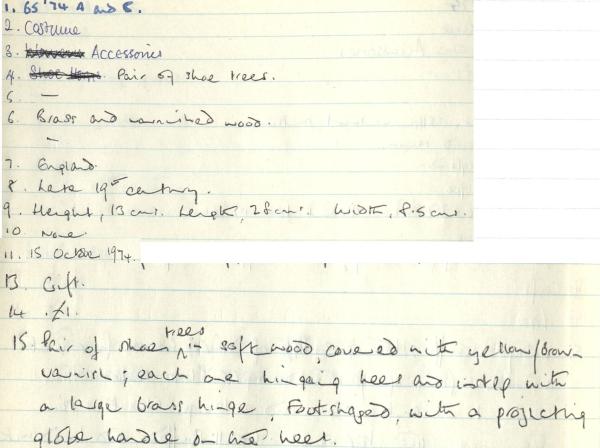 1. 65'74 A and B.
2. Costume
3. Accessories
4. Pair of shoe trees.
5. —
6. Brass and varnished wood.
—
7. England
8. Late 19th century.
9. Height, 13 cms. Length, 28 cms. Width, 8.5 cms.
10 None
11. 15 October 1974.
13 Gift.
14 £1.
15 Pair of shoe trees in soft wood, covered with yellow/brown
varnish; each one hingeing heel and instep with
a large brass hinge. Foot-shaped, with a projecting
globe handle on the heel.